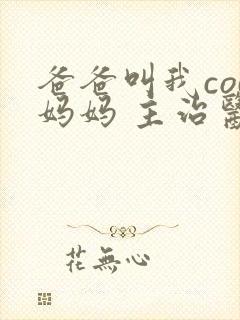 爸爸叫我co
妈妈 主治醫
花無心